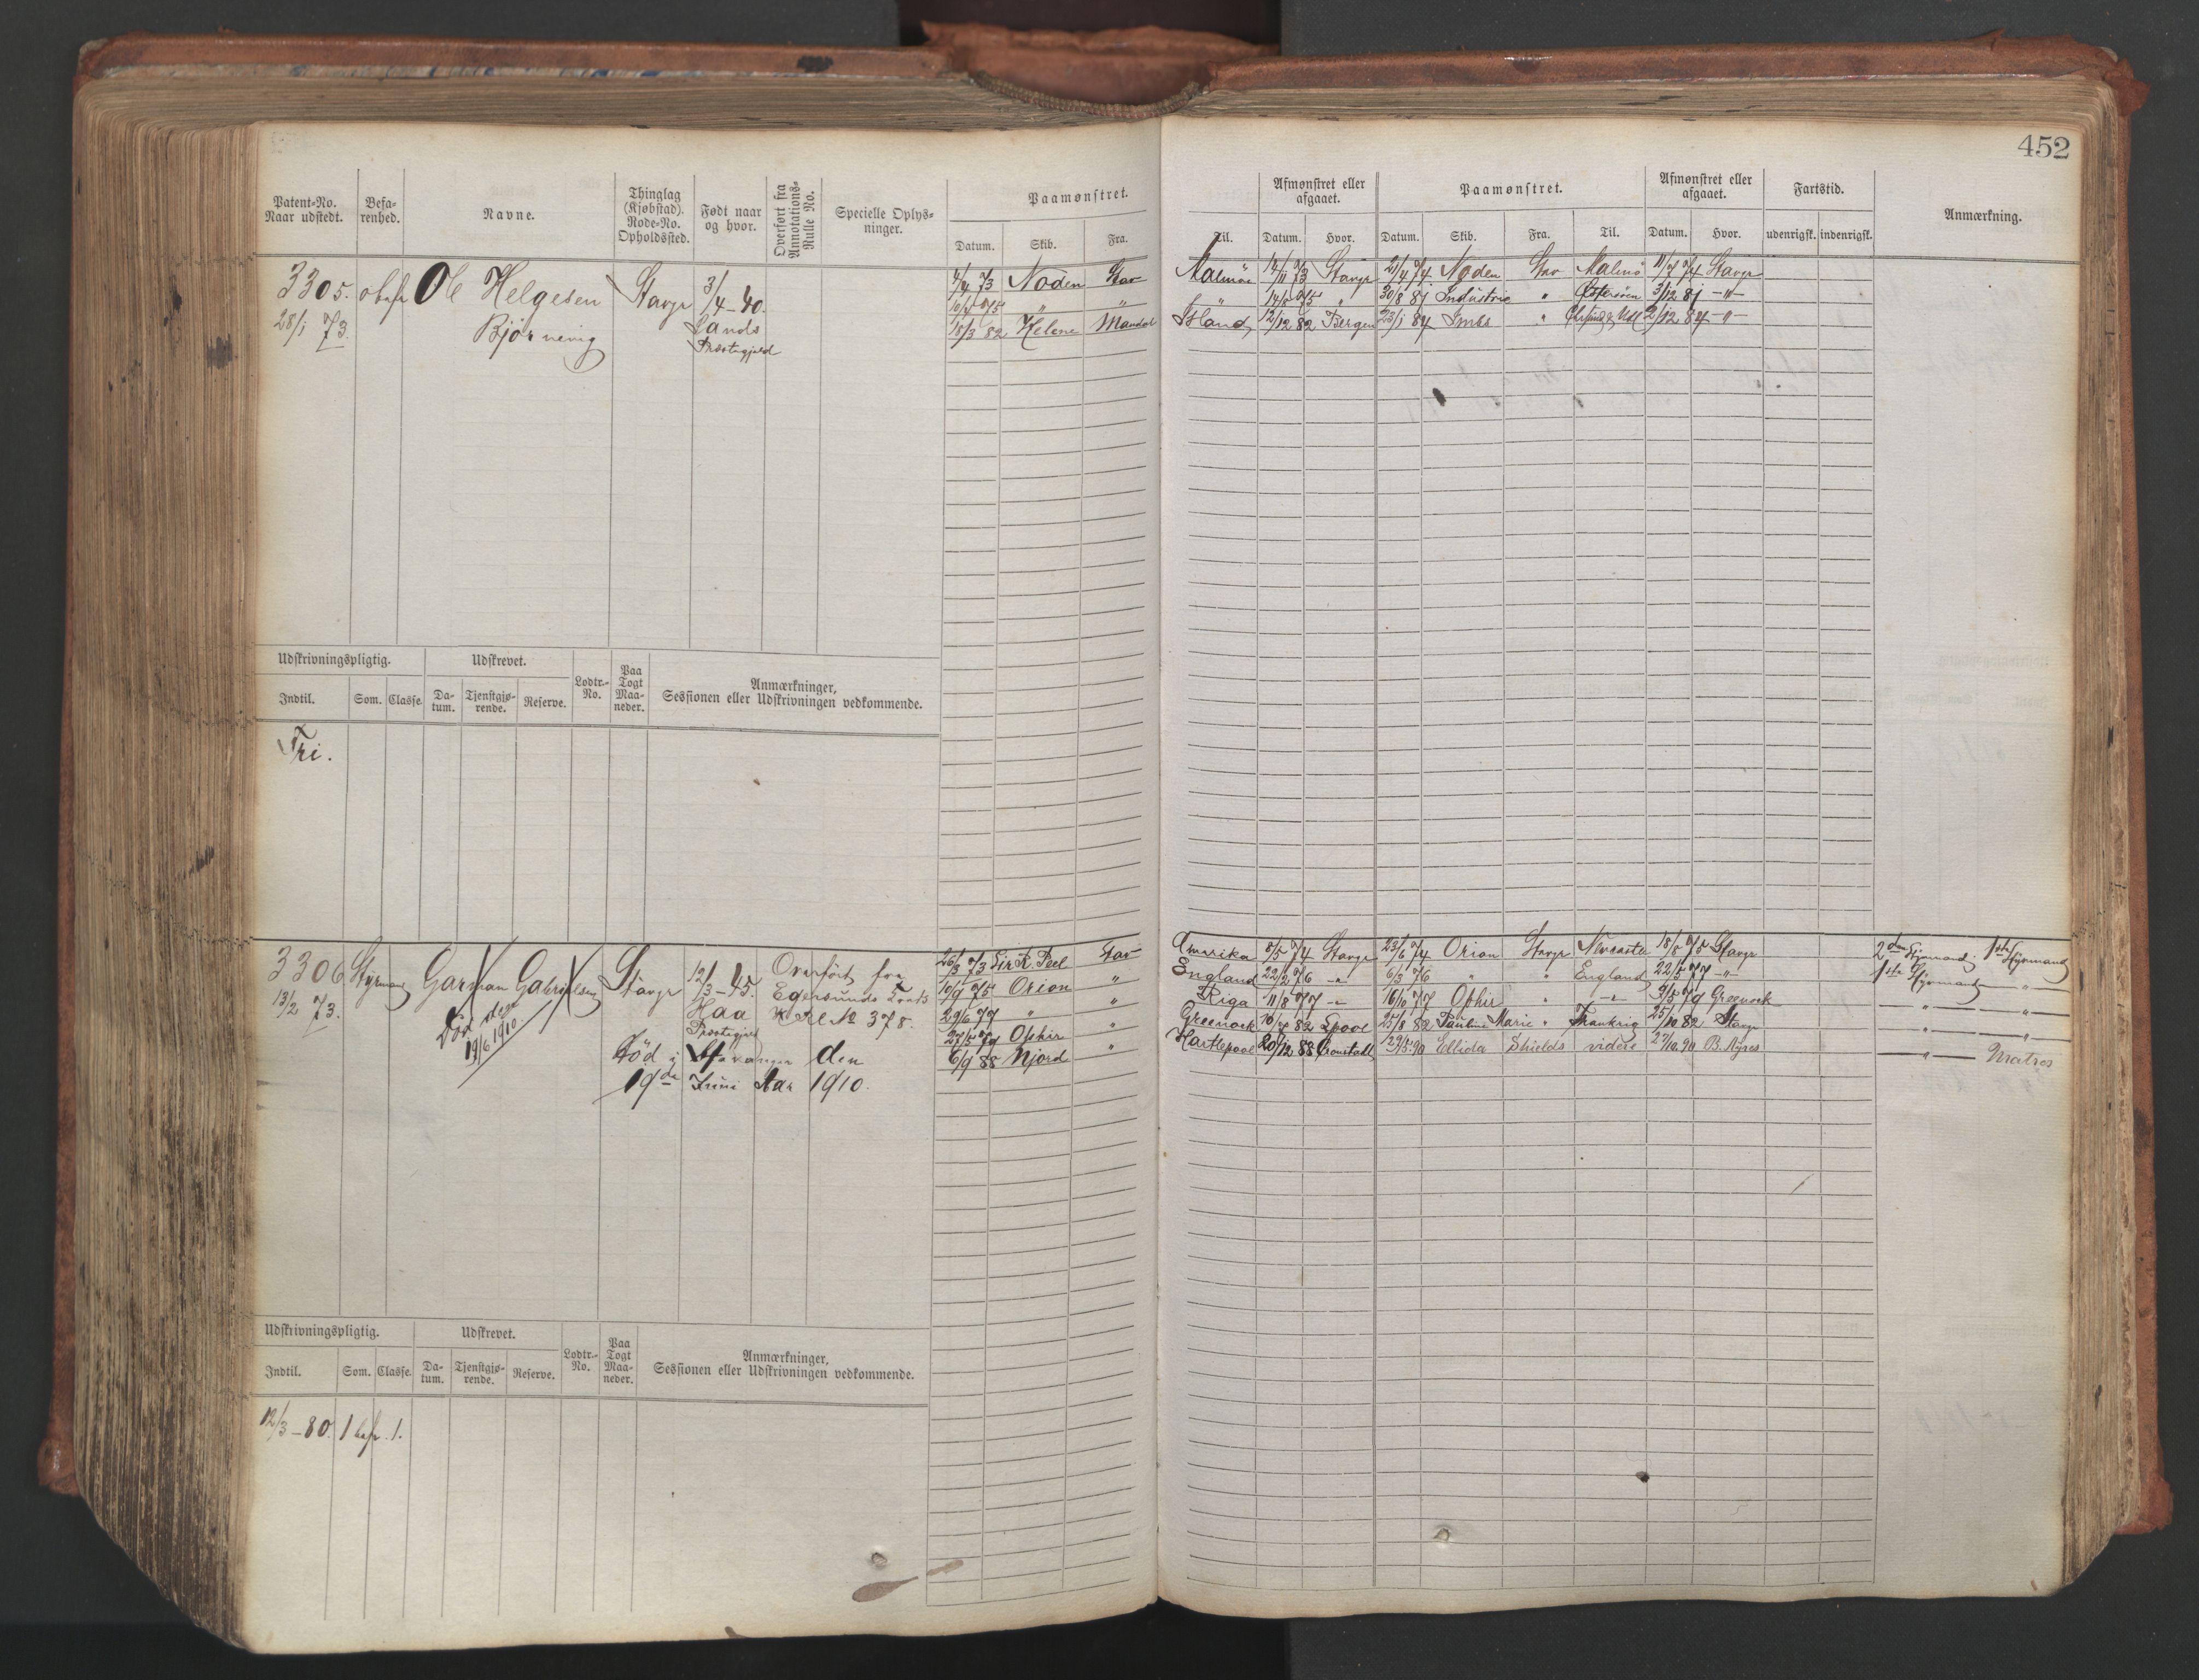 452
Patent-No. Naar udstedt. Befarenhed. Navne. Thinglag (Kjøbstad). Rode-No. Opholdssted. Født naar og hvor. Overført fra Annotations-Rulle No. Specielle Oplysninger. Paamønstret. Datum. Skib. Fra.
Til. Afmønstret eller afgaaet. Datum. Hvor. Paamønstret. Datum. Skib. Fra. Til. Afmønstret eller afgaaet. Datum. Hvor. Fartstid. udenrigsk. indenrigsk. Anmærkning.
3305. obefr Ole Helgesen Stavgr 3/4-40.
28/1 73. Bjørnevig Sands
Præstegjeld
4/4 73 Noden Stav Malmö 14/11 73 Stavgr 21/4 74 Noden Stav Malmö 11/7 74 Stavgr
10/4 75 " " " 14/8 75 " 30/8 81 Industrie " 3/12 81 -"-
18/3 82 Helene Mandal Island 12/12 82 Bergen 23/1 84 " 2/12 84 -"-
Udskrivningspligtig. Udskrevet. Lodtr.-No. Paa Togt Maaneder. Anmærkninger, Sessionen eller Udskrivningen vedkommende.
Indtil. Som. Classe. Datum. Tjenstgjørende. Reserve.
Fri.
3306 Styrmand Garman Gabrielsen Stavgr 12/3-45. Overført fra
13/2 73. Død den Haa Egersunds
19/6 1910. Præstegjeld No 378.
Död i Stavanger den
19de Juni Aar 1910.
26/3 73 Sir R. Peel Stav Amerika 8/5 74 Stavgr 23/6 74 Orion Stavgr Newcastle 18/8 75 Stavgr 2den Styrmand. 1ste Styrmand
10/9 75 Orion " England 22/2 76 -"- 6/3 76 " " England 22/5 77 -"- 1ste Styrmand "
29/6 77 " " Riga 11/8 77 -"- 16/10 77 Ophir " -"- 9/5 79 Greenock " "
27/5 79 Ophir " Greenock 82 Lpool 25/8 82 Pauline Marie " Frankrig 25/10 82 Stavgr " "
6/9 88 Njord " Hartlepool 20/12 88 Cronstadt 29/5 90 Ellida Shields videre 27/10 90 B. Ayres " Matros
Udskrivningspligtig. Udskrevet. Lodtr.-No. Paa Togt Maaneder. Anmærkninger, Sessionen eller Udskrivningen vedkommende.
Indtil. Som. Classe. Datum. Tjenstgjørende. Reserve.
12/3-80. 1 befr. 1.